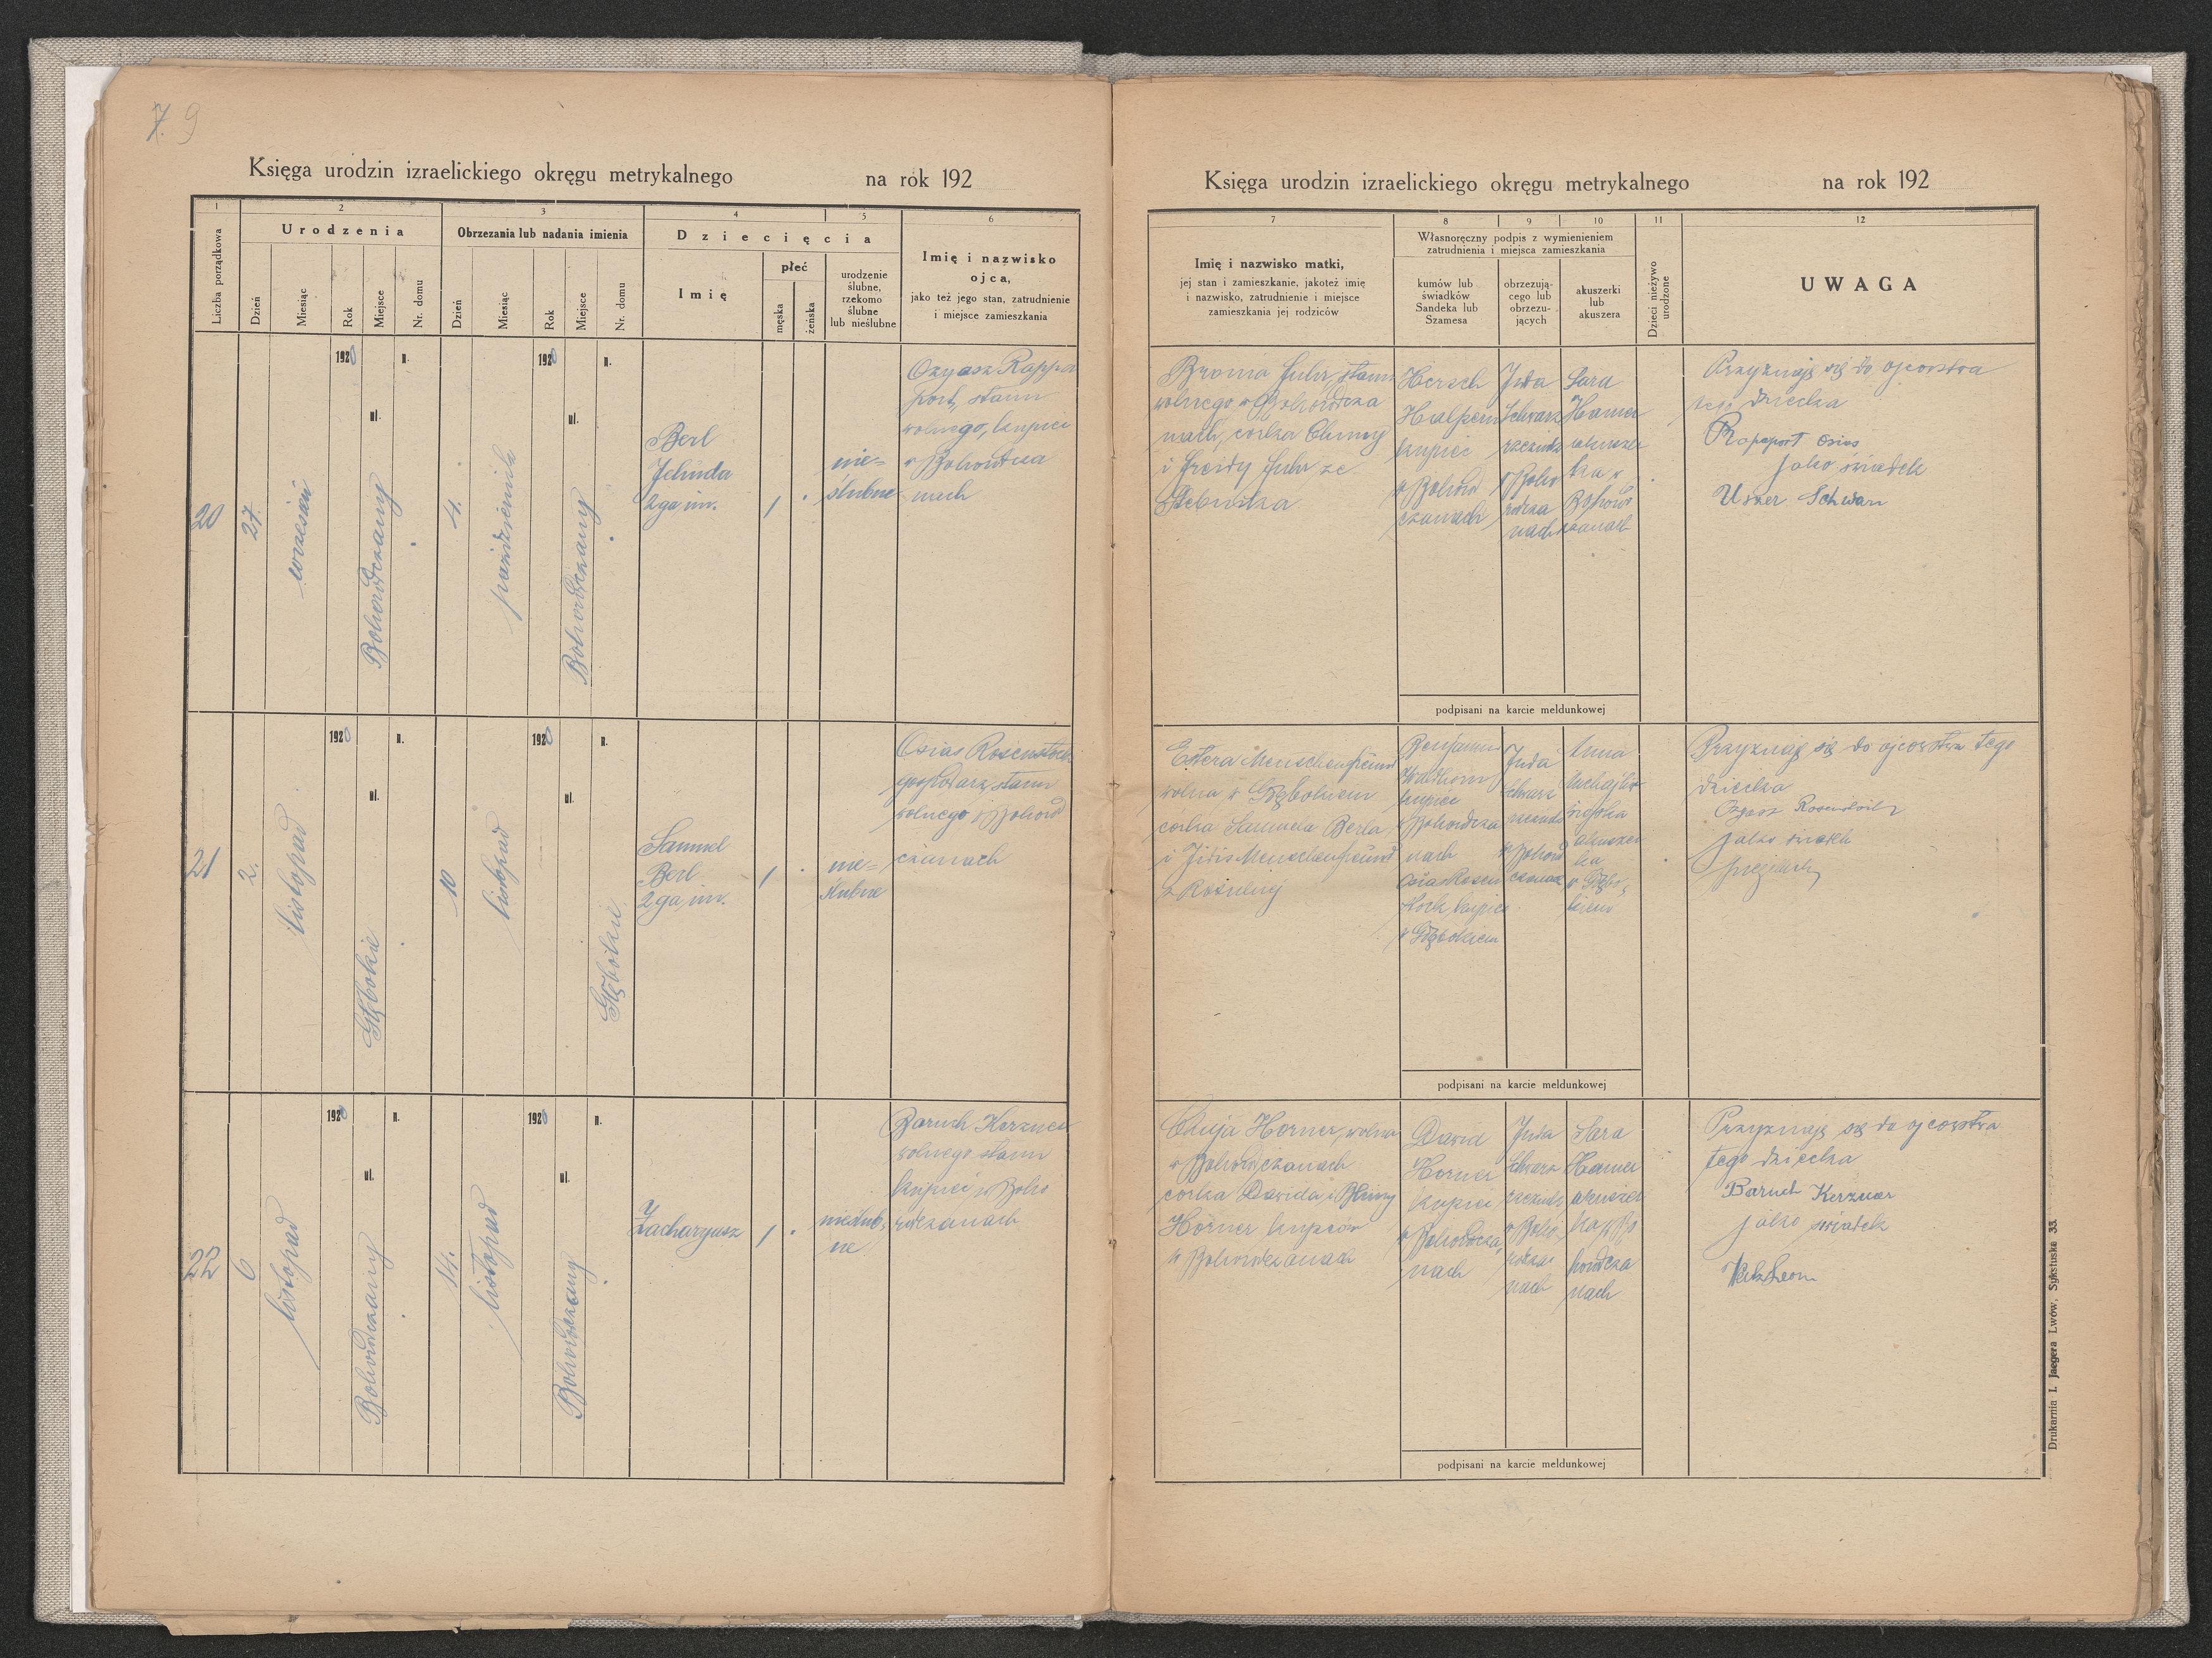 7. 9
Księga urodzin izraelickiego okręgu metrykalnego na rok 192
1
2
3
4
5
6
Liczba porządkowa
Urodzenia
Obrzezania lub nadania imienia
Dziecięcia
Imię i nazwisko
ojca,
jako też jego stan, zatrudnienie
i miejsce zamieszkania
Dzień
Miesiąc
Rok
Miejsce
Nr. domu
Dzień
Miesiąc
Rok
Miejsce
Nr. domu
Imię
płeć
męska
żeńska
urodzenie
ślubne,
rzekomo
ślubne
lub nieślubne
20
27.
wrzesień
1928
ul.
Bohorodczany
n.
4.
październik
1928
ul.
Bohorodczany
n.
Berl
Jehuda
2ga im.
1
nie=
ślubne
Ozyasz Rappa
port, stanu
wolnego, kupiec
w Bohorodcza
nach
21
2.
listopad
1928
ul.
Głębokie
n.
10
listopad
1928
ul.
Głębokie
n.
Samuel
Berl
2ga im.
1
nie=
ślubne
Osias Rosenstock
gospodarz, stanu
wolnego w Bohorod
czanach
22
6
listopad
1928
ul.
Bohorodczany
n.
14.
listopad
1928
ul.
Bohorodczany
n.
Zacharyasz
1
nieślub,
ne
Baruch Kerzner
wolnego stanu
kupiec w Boho
rodczanach
Księga urodzin izraelickiego okręgu metrykalnego na rok 192
7
8
9
10
11
12
Imię i nazwisko matki,
jej stan i zamieszkanie, jakoteż imię
i nazwisko, zatrudnienie i miejsce
zamieszkania jej rodziców
Własnoręczny podpis z wymienieniem
zatrudnienia i miejsca zamieszkania
kumów lub
świadków
Sandeka lub
Szamesa
obrzezują-
cego lub
obrzezu-
jących
akuszerki
lub
akuszera
Dzieci nieżywo
urodzone
UWAGA
Bronia Fuhr, stanu
wolnego w Bohorodcza
nach, córka Chuny
i Freidy Fuhr ze
Hersch
Halpern
kupiec
w Bohorod
czanach
Juda
Schwarz
rzezak
w Boho
rodcza
nach
Sara
Hamer
akuszer
ka w
Bohorod
czanach
Przyznaję się do ojcostwa
tego dziecka
Rapaport Osias
jako świadek
Uszer Schwarz
podpisani na karcie meldunkowej
Estera Menschenfreund
wolna w Głębokiem
córka Samuela Berla
i Jidis Menschenfreund
z Rosulnej
Benjamin
Waldhorn
kupiec
w Bohorodcza
nach
Osias Rosen
stock kupiec
w Głębokiem
Juda
Schwarz
rzezak
w Bohorod
czanach
Anna
akuszer
ka
w Głębo,
kiem
Przyznaję się do ojcostwa tego
dziecka
jako świadek
podpisani na karcie meldunkowej
Chuja Horner, wolna
w Bohorodczanach
córka Dawida i Blimy
Horner kupców
w Bohorodczanach
Dawid
Horner
kupiec
w Bohorodcza,
nach
Juda
Schwarz
rzezak
w Boho,
rodcza
nach
Sara
Hamer
akuszer
ka w Bo
horodcza
nach
Przyznaję się do ojcostwa
tego dziecka
Baruch Kerzner
jako świadek
podpisani na karcie meldunkowej
Drukarnia I. Jaegera Lwów, Sykstuska 33.